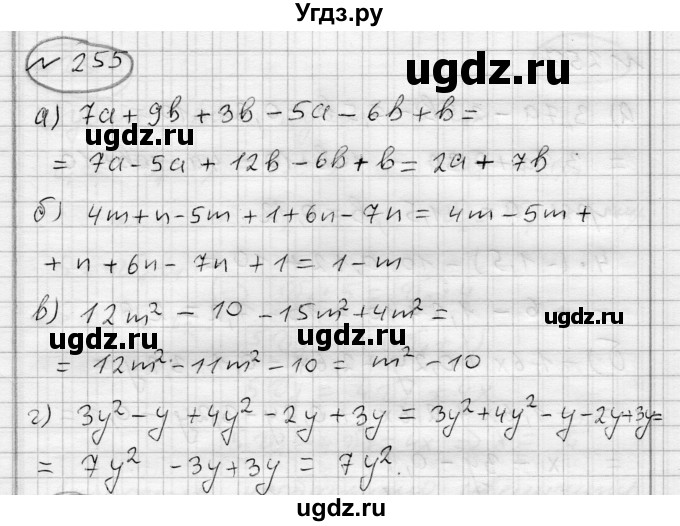 Угдз.ру
№ 255
ugdz.ru
а) 7a + 9b + 3b - 5a - 6b + b =
ugdz.ru
= 7a - 5a + 12b - 6b + b = 2a + 7b
б) 4m + n - 5m + 1 + 6n - 7n = 4m - 5m +
+ n + 6n - 7n + 1 = 1 - m
в) 12m² - 10 - 15m² + 4m² =
ugdz.ru
ugdz.ru
ugdz.ru
= 12m² - 11m² - 10 = m² - 10
г) 3y² - y + 4y² - 2y + 3y = 3y² + 4y² - y - 2y + 3y =
= 7y² - 3y + 3y = 7y².
ugdz.ru
ugdz.ru